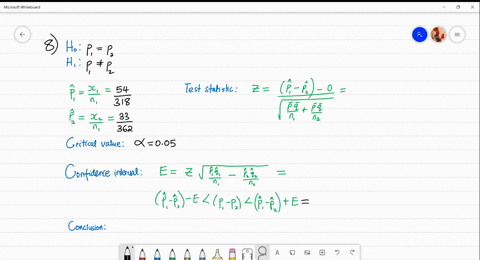 Microsoft Whiteboard
8) H₀: p₁ = p₂
H₁: p₁ ≠ p₂
p̂₁ = x₁/n₁ = 54/318
Test statistic: Z = (p̂₁ - p̂₂) - 0 / √(p̄q̄/n₁ + p̄q̄/n₂) =
p̂₂ = x₂/n₂ = 33/362
Critical value: α = 0.05
Confidence interval: E = Z √(p̂₁q̂₁/n₁ - p̂₂q̂₂/n₂) =
(p̂₁ - p̂₂) - E < (p₁ - p₂) < (p̂₁ - p̂₂) + E =
Conclusion: